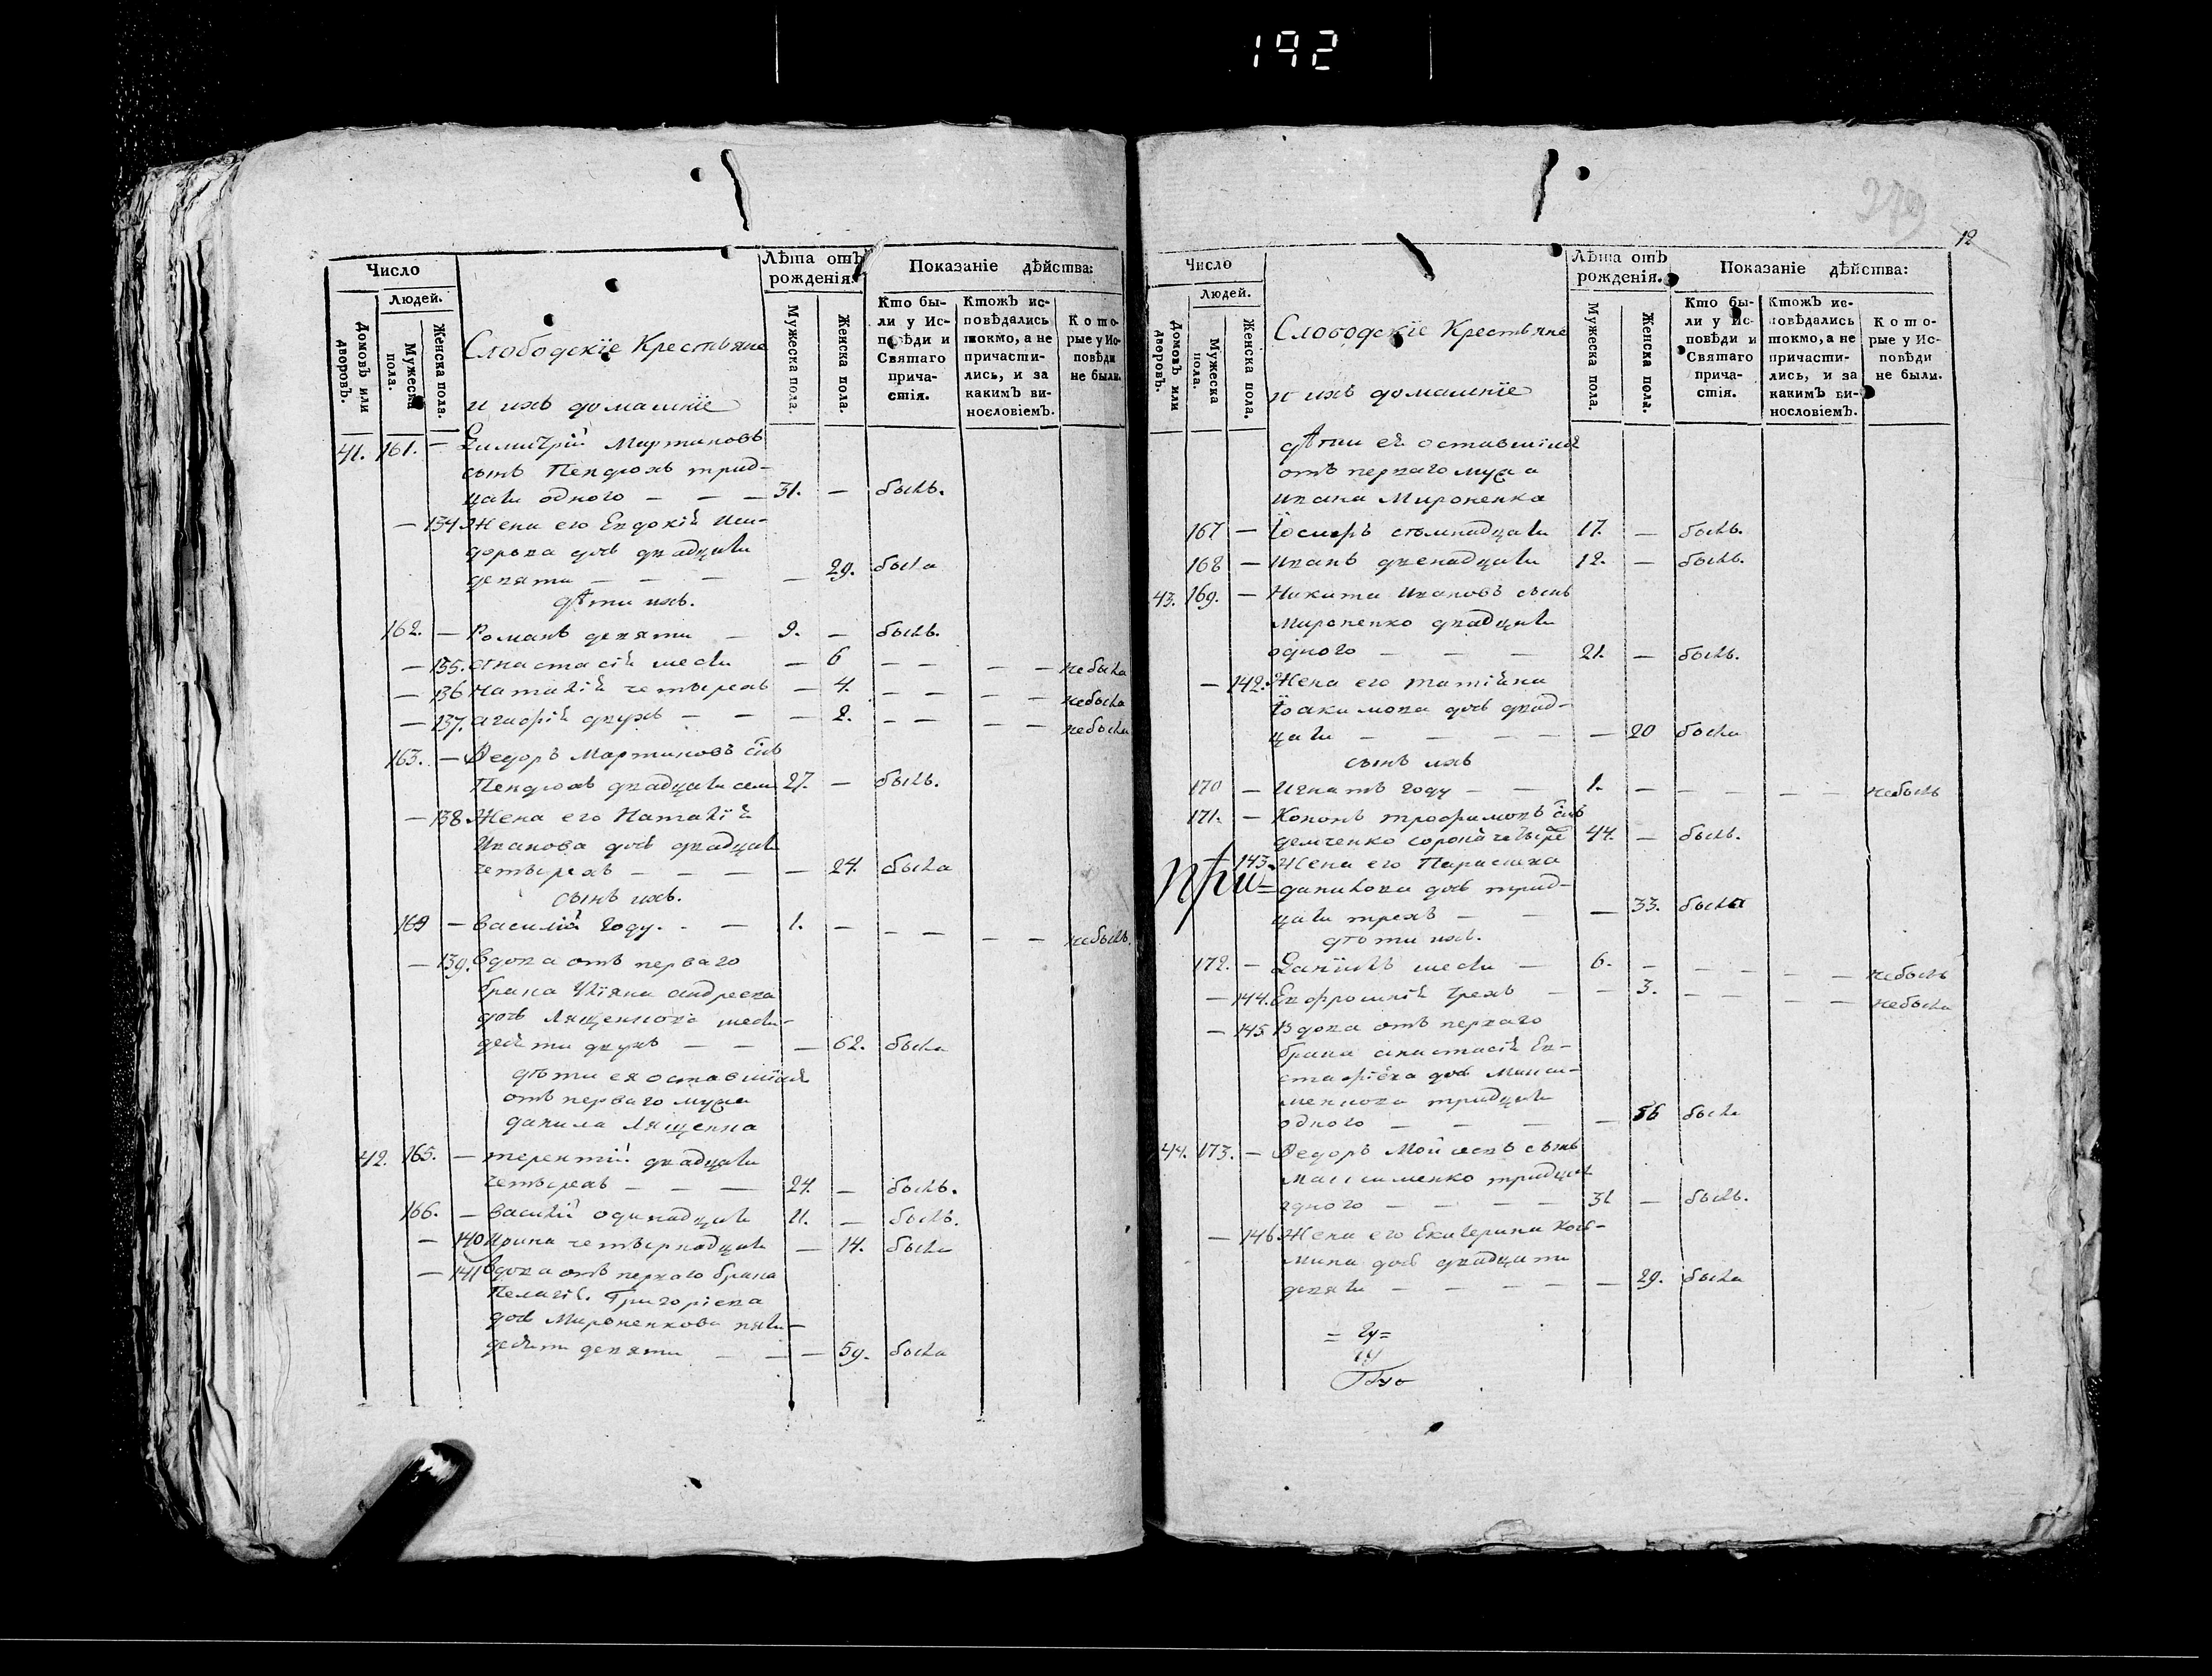 192
279
12
Число
Людей.
Домовъ или дворовъ.
Мужеска пола.
Женска пола.
Слободскіе Крестьяне
и ихъ домашніе
Лѣта отъ рожденія.
Мужеска пола.
Женска пола.
Показаніе дѣйства:
Кто бы-
ли у Ис-
повѣди и
Святаго
прича-
стія.
Ктожъ ис-
повѣдались
токмо, а не
причасти-
лись, и за
какимъ ви-
нословіемъ.
Кото-
рые у Ис-
повѣди
не были.
41. 161. — Димитрій Мартиновъ
сынъ Пендюхъ трид-
цати одного — — — 31. — былъ.
— 134 Жена его Евдокія Иси-
дорова дочь двадцати
девяти — — — — 29. была
дѣти ихъ.
162. — Романъ девяти — 9. — былъ.
— 135. Анастасія шести — 6 — — — — небыла
— 136 Наталія четырехъ — 4. — — — — небыла
— 137. Агафія двухъ — — — 2. — — — — небыла
163. — Федоръ Мартиновъ снъ
Пендюхъ двадцати семи 27. — былъ.
— 138 Жена его Наталія
Иванова дочь двадцати
четырехъ — — — — 24. была
сынъ ихъ.
164 — Василій году. - — 1. — — — — — небылъ.
— 139. Вдова отъ перваго
брака Уліяна Андреева
дочь Лященкова шести-
десяти двухъ — — — 62. была
дѣти ея оставшіися
отъ перваго мужа
Данила Лященка
42. 165. — Терентій двадцати
четырехъ — — — 24. — былъ.
166. — Василій одинадцати 11. — былъ.
— 140 Ирина четырнадцати — 14. была
— 141 Вдова отъ перваго брака
Пелагія Григоріева
дочь Мироненкова пяти-
десяти девяти — — — 59. была
Число
Людей.
Домовъ или дворовъ.
Мужеска пола.
Женска пола.
Слободскіе Крестьяне
и ихъ домашніе
Лѣта отъ рожденія.
Мужеска пола.
Женска пола.
Показаніе дѣйства:
Кто бы-
ли у Ис-
повѣди и
Святаго
прича-
стія.
Ктожъ ис-
повѣдались
токмо, а не
причасти-
лись, и за
какимъ ви-
нословіемъ.
Кото-
рые у Ис-
повѣди
не были.
дѣти ея оставшіися
отъ перваго мужа
Ивана Мироненка
167 — Іосифъ семнадцати 17. — былъ.
168 — Иванъ двенадцати 12. — былъ.
43. 169. — Никита Ивановъ сынъ
Мироненко двадцати
одного — — — 21. — былъ.
— 142. Жена его Татіяна
Іоакимова дочь двад-
цати — — — — — 20 была
сынъ ихъ
170 — Игнатъ году — — 1. — — — — — небылъ
171. — Кононъ Трофимовъ снъ
Демченко сорока четыре 44. — былъ.
143. Жена его Параскева
при= Данилова дочь трид-
цати трехъ — — — 33. была
дѣти ихъ.
172. — Даніилъ шести — 6. — — — — — небылъ
— 144. Евфросинія трехъ — — 3. — — — — небыла
— 145 Вдова отъ перваго
брака Анастасія Ев-
стафіева дочь
тридцати
одного — — — — 56 была
44. 173. — Федоръ Мойсеевъ сынъ
тридцати
одного — — — — 31 — былъ.
— 146 Жена его Екатерина Косъ-
мина дочь двадцати
девяти — — — — — 29. была